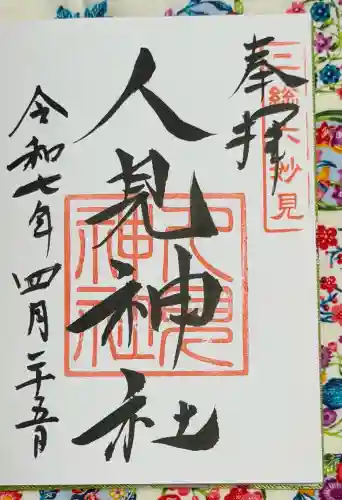 奉拝
妙見
人見神社
人見
神社
令和七年四月二十五日